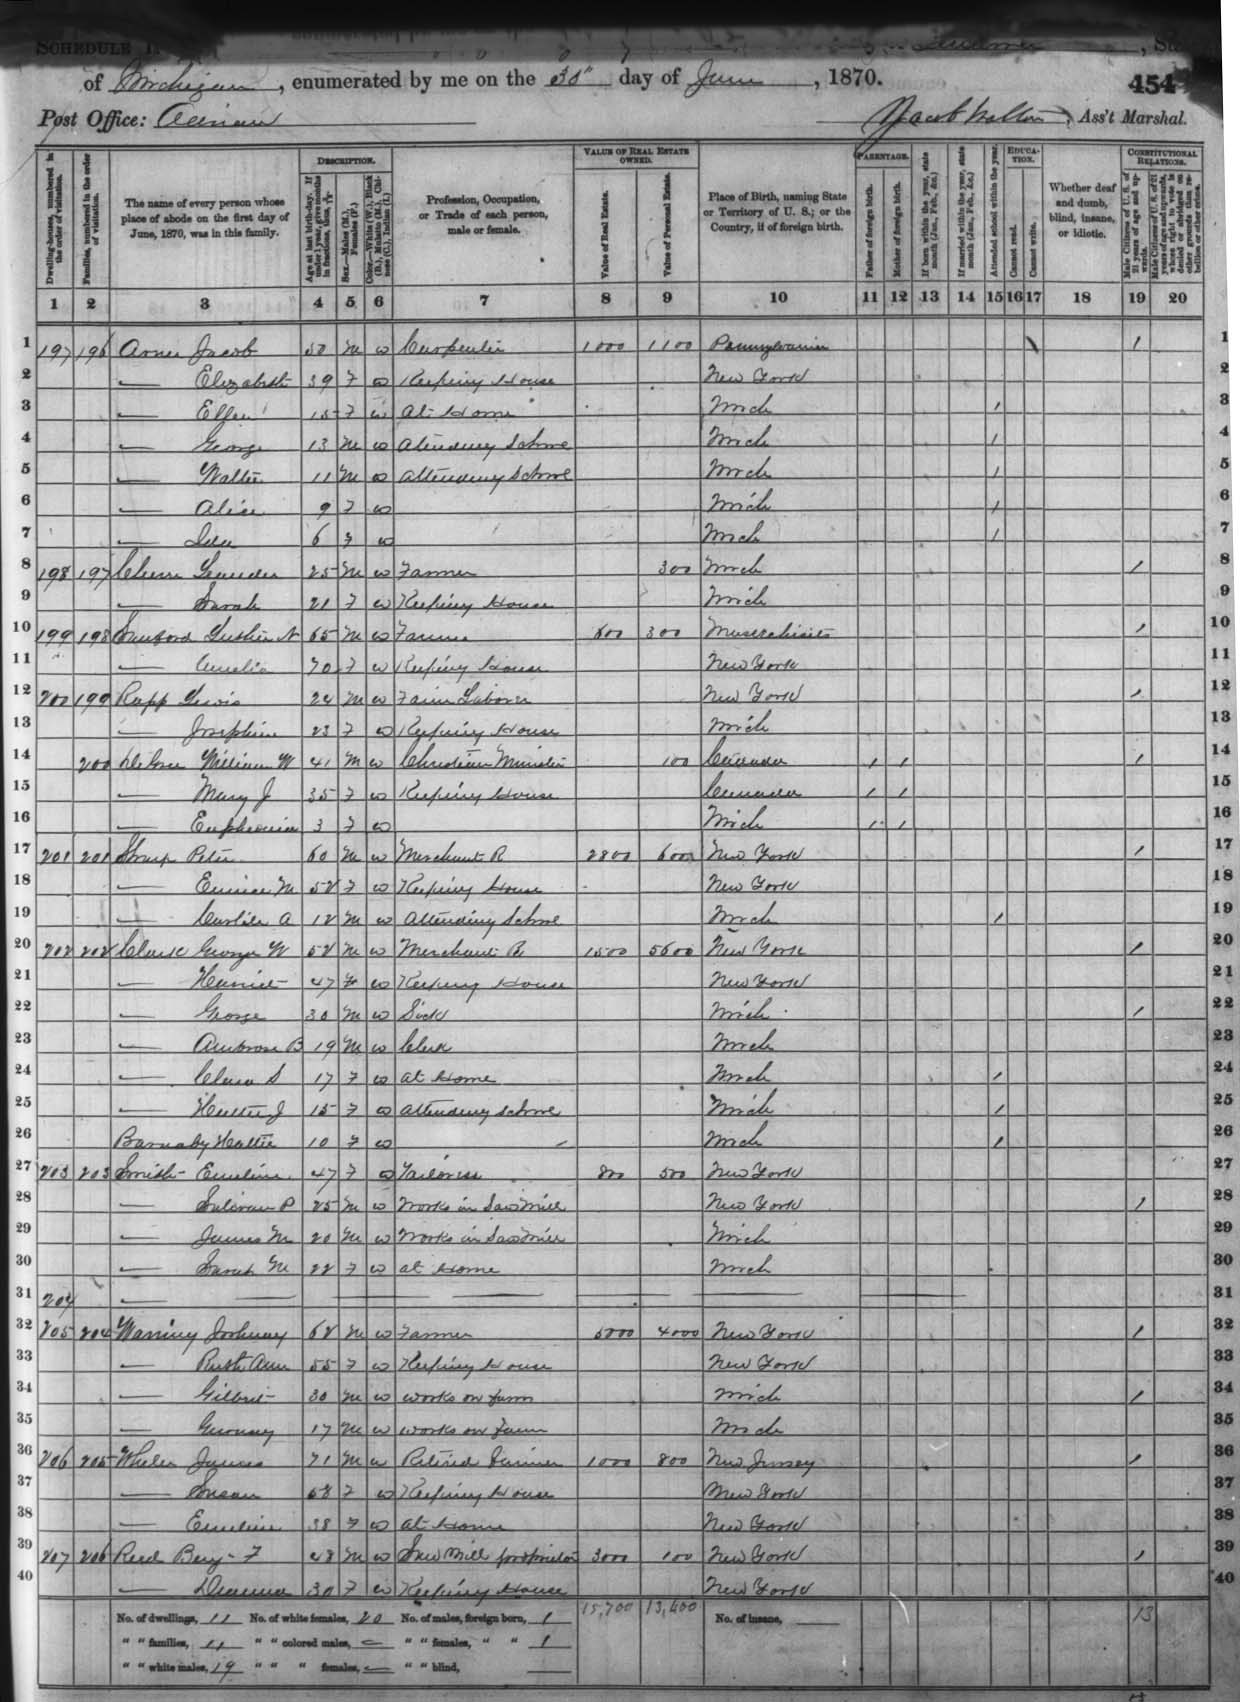 SCHEDULE 1
of Michigan, enumerated by me on the 30" day of June, 1870.
454
Post Office: Adrian
Jacob Walton, Ass't Marshal.
Dwelling-houses, numbered in the order of visitation.
Families, numbered in the order of visitation.
The name of every person whose place of abode on the first day of June, 1870, was in this family.
DESCRIPTION.
Age at last birth-day. If under 1 year, give months in fractions, thus, 3/12
Sex.—Males (M.), Females (F.)
Color.—White (W.), Black (B.), Mulatto (M.), Chinese (C.), Indian (I.)
Profession, Occupation, or Trade of each person, male or female.
VALUE OF REAL ESTATE OWNED.
Value of Real Estate.
Value of Personal Estate.
Place of Birth, naming State or Territory of U. S.; or the Country, if of foreign birth.
PARENTAGE.
Father of foreign birth.
Mother of foreign birth.
If born within the year, state month (Jan., Feb., &c.)
If married within the year, state month (Jan., Feb., &c.)
EDUCATION.
Attended school within the year.
Cannot read.
Cannot write.
Whether deaf and dumb, blind, insane, or idiotic.
CONSTITUTIONAL RELATIONS.
Male Citizens of U. S. of 21 years of age and upwards.
Male Citizens of U. S. of 21 years of age and upwards, whose right to vote is denied or abridged on other grounds than rebellion or other crime.
1 2 3 4 5 6 7 8 9 10 11 12 13 14 15 16 17 18 19 20
1 197 196 Jacob 50 M W Carpenter 1000 1100 Pennsylvania 1 1
2 — Elizabeth 39 F W Keeping House New York 2
3 — Ellen 15 F W At Home Mich 1 3
4 — George 13 M W Attending School Mich 1 4
5 — Walter 11 M W Attending School Mich 1 5
6 — Alice 9 F W Mich 1 6
7 — Ida 6 F W Mich 1 7
8 198 197 25 M W Farmer 300 Mich 1 8
9 — Sarah 21 F W Keeping House Mich 9
10 199 198 Sanford Luther N 65 M W Farmer 600 300 Massachusetts 1 10
11 — Amelia 70 F W Keeping House New York 11
12 200 199 Rapp Lewis 24 M W Farm Laborer New York 1 12
13 — Josephine 23 F W Keeping House Mich 13
14 200 William W 41 M W Christian Minister 100 Canada 1 1 1 14
15 — Mary J 35 F W Keeping House Canada 1 1 15
16 — Euphemia 3 F W Mich 1 1 16
17 201 201 Sharp Peter 60 M W Merchant R 2800 6000 New York 1 17
18 — Eunice M 52 F W Keeping House New York 18
19 — A 12 M W Attending School Mich 1 19
20 202 202 Clark George W 52 M W Merchant R 1500 5600 New York 1 20
21 — Harriet 47 F W Keeping House New York 21
22 — George 30 M W Sick Mich 1 22
23 — Ambrose B 19 M W Clerk Mich 23
24 — Clara S 17 F W At Home Mich 1 24
25 — Hattie J 15 F W Attending School Mich 1 25
26 Barnaby Hattie 10 F W Mich 1 26
27 203 203 Smith Emeline 47 F W Tailoress 800 500 New York 27
28 — Sulivan P 25 M W Works in Saw Mill New York 1 28
29 — James M 20 M W Works in Saw Mill Mich 29
30 — Sarah M 22 F W At Home Mich 30
31 204 — 31
32 205 204 62 M W Farmer 5000 4000 New York 1 32
33 — Ruth Ann 55 F W Keeping House New York 33
34 — Gilbert 30 M W Works on Farm Mich 1 34
35 — Gurnsey 17 M W Works on Farm Mich 35
36 206 205 Wheler James 71 M W Retired Farmer 1000 800 New Jersey 1 36
37 — Susan 58 F W Keeping House New York 37
38 — Emeline 38 F W At Home New York 38
39 207 206 Reed Benj. F 48 M W Saw Mill proprietor 3000 100 New York 1 39
40 — 30 F W Keeping House New York 40
No. of dwellings, 11 No. of white females, 20 No. of males, foreign born, 1 15,700 13,400 No. of insane, 13
" " families, 11 " " colored males, — " " females, " " 1
" " white males, 19 " " " females, — " " blind,